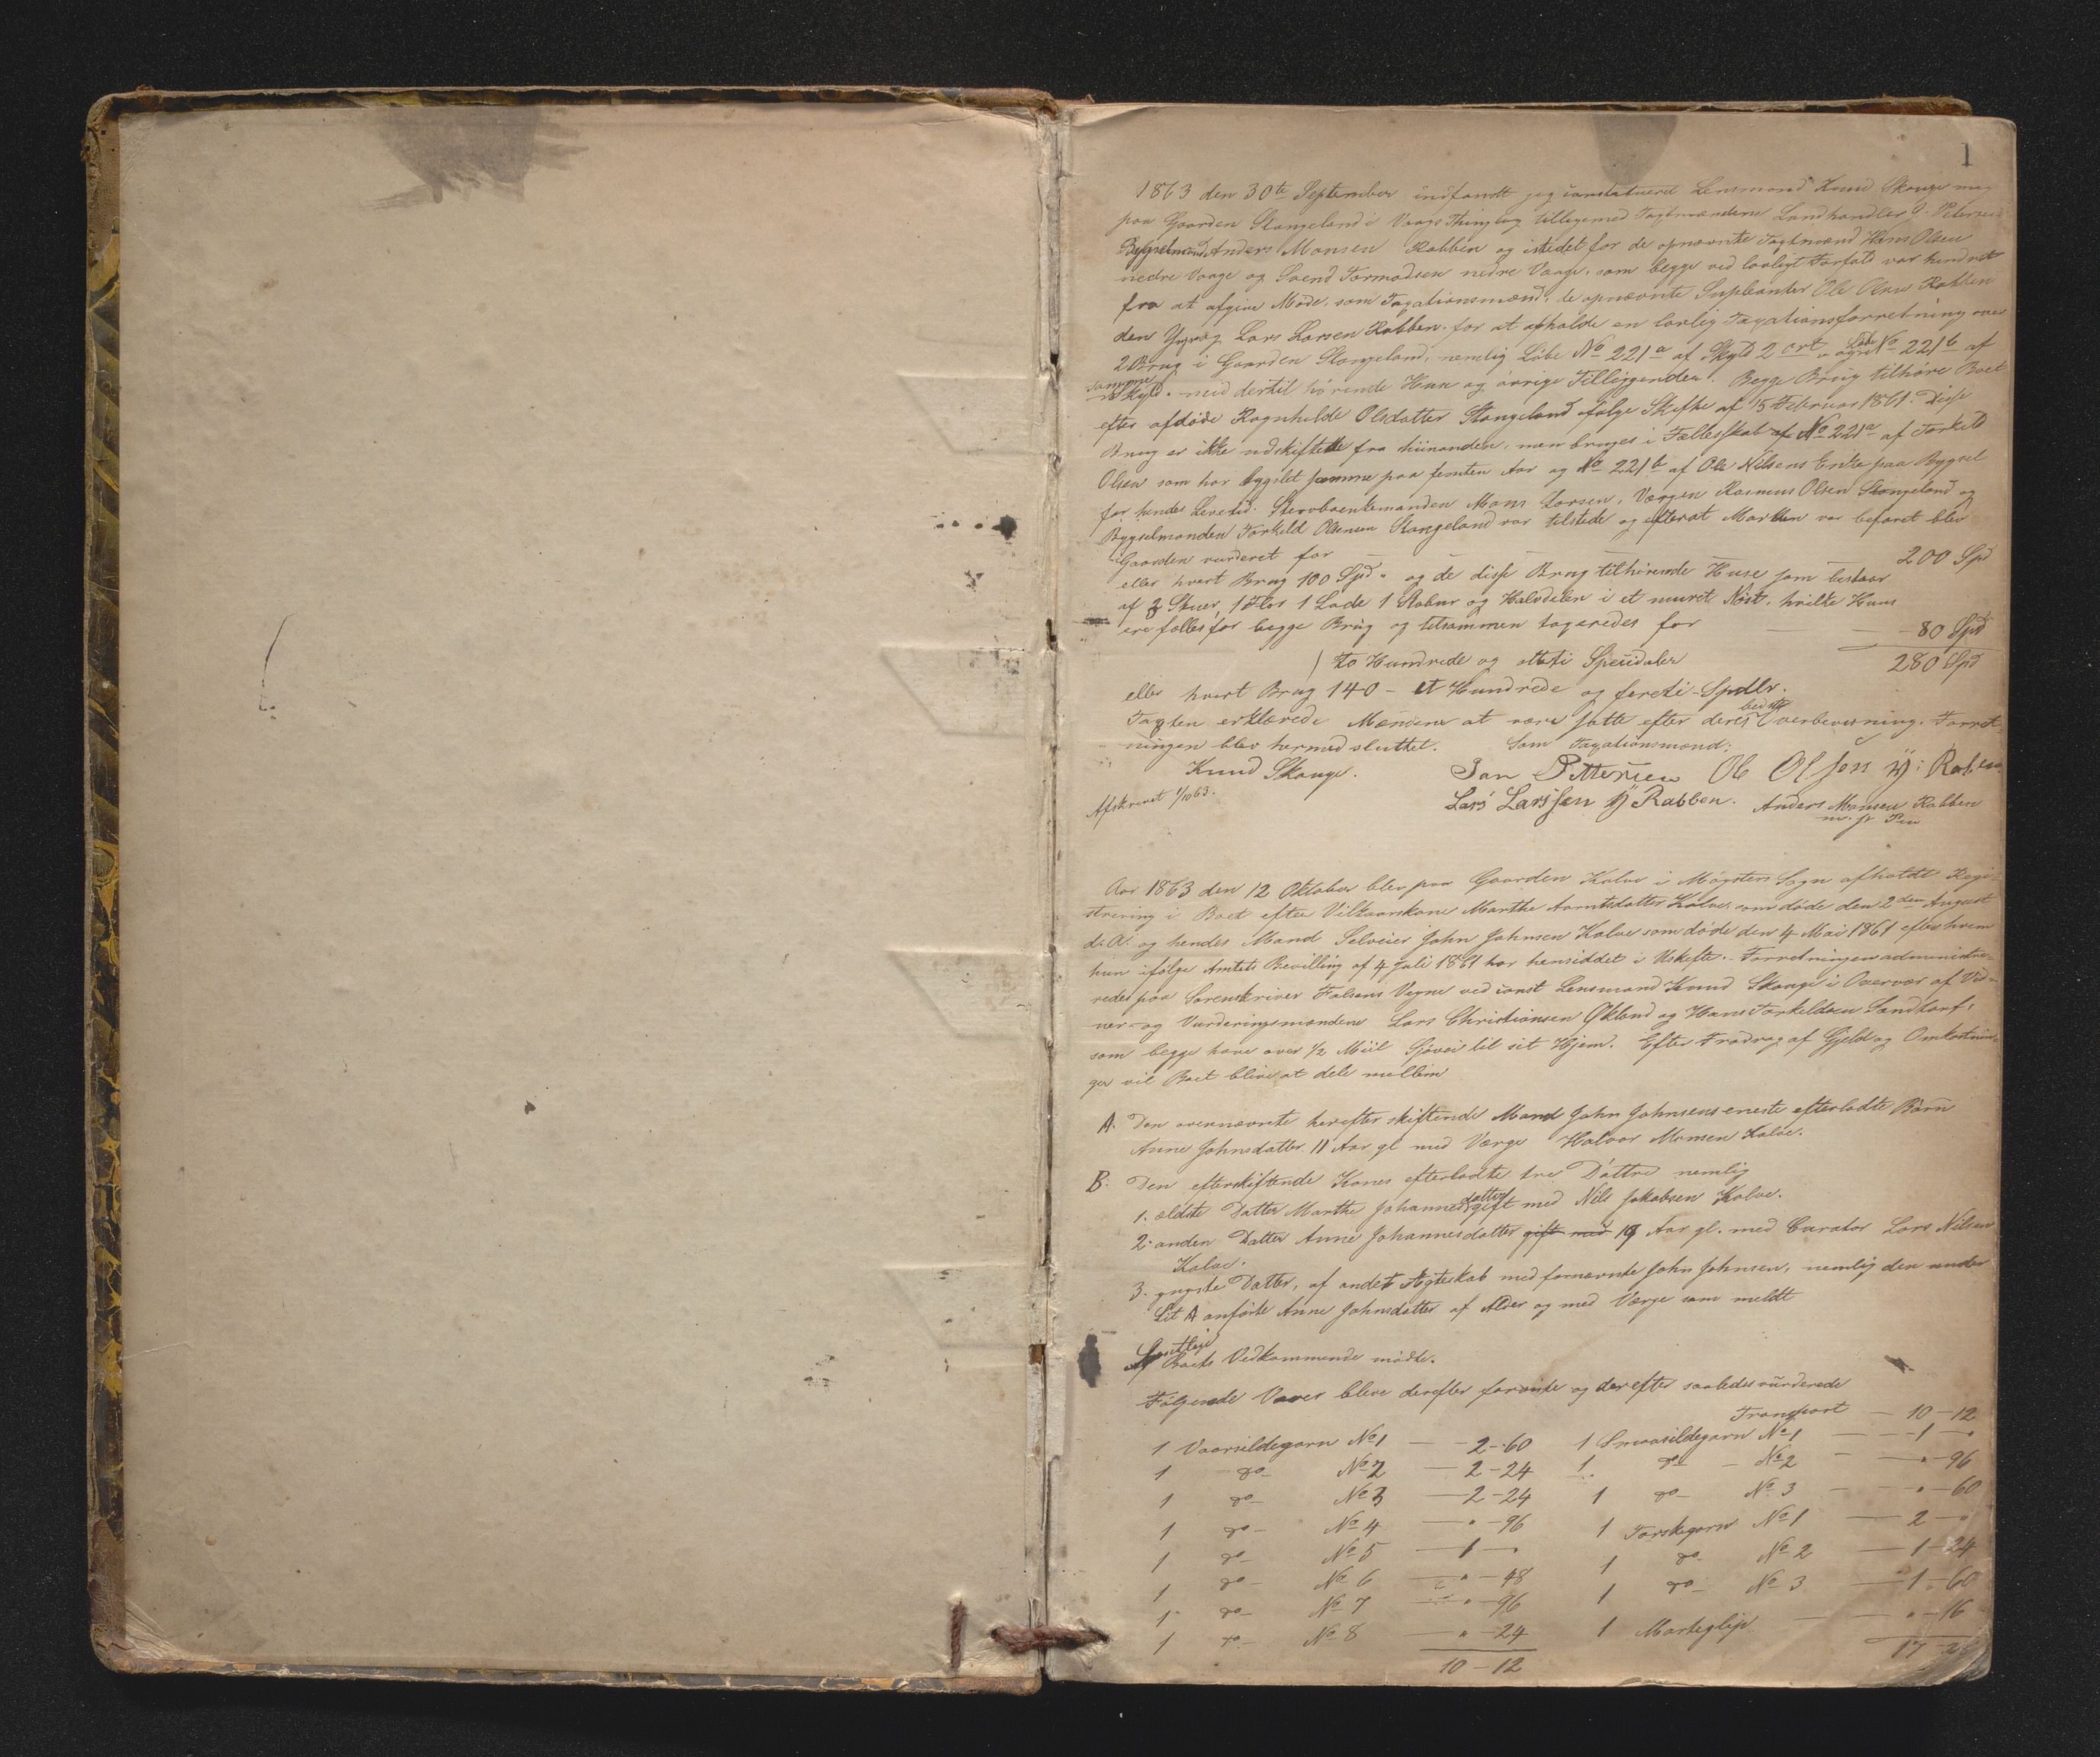 1
1863 den 30te September indfandt jeg constitueret Lensmand Knud Skauge mig
paa Gaarden Stangeland i Vaags Thinglag tilligemed Taxtmændene Landhandler J. Petersen
Bygselmand Anders Monsen Rabben og istedet for de opnævnte Taxtmænd Hans Olsen
nedre Vaage og Svend Tormodsen nedre Vaage, som begge ved lovligt Forfald var hindret
fra at afgive Møde, som Taxationsmænd, de opnævnte Supleanter Ole Olsen Rabben
den Yngre og Lars Larsen Rabben, for at afholde en lovlig Taxationsforretning over
2 Brug i Gaarden Stangeland, nemlig Løbe No 221a af Skyld 2 ort og Løbe No 221b af
samme Skyld, med dertil hørende Huse og øvrige Tilliggender. Begge Brug tilhøre Boet
efter afdøde Ragnhilde Olsdatter Stangeland ifølge Skifte af 15 Februar 1861. Disse
Brug er ikke udskiftede fra hinanden, men bruges i Fællesskab af No 221a af Torkild
Olsen som har bygslet samme paa femten Aar og No 221b af Ole Nilsens Enke paa Bygsel
for hendes Levetid. Stervboenkemanden Mons Larsen, Værgen Rasmus Olsen Stangeland og
Bygselmanden Torkild Olsen Stangeland var tilstede og efterat Marken var befaret blev
Gaarden vurderet for — 200 Spd
eller hvert Brug 100 Spd. og de disse Brug tilhørende Huse som bestaar
af 2 Stuer, 1 Flor 1 Lade 1 Stabur og Halvdelen i et muret Nøst, hvilke Huse
ere fælles for begge Brug og tilsammen taxeredes for — 80 Spd
to Hundrede og otteti Speciedaler 280 Spd
eller hvert Brug 140 - et Hundrede og fireti - Spdlr.
Taxten erklærede Mændene at være satte efter deres bedste Overbevisning. Forret-
ningen blev hermed sluttet. Som Taxationsmænd:
Knud Skauge. Jan Pettersen Ole Olsen y: Raben
Afskrevet 1/10 63. Lars Larssen y Rabben. Anders Monsen Rabben
m. f. Pen
Aar 1863 den 12 Oktober blev paa Gaarden Kalve i Møgsters Sogn afholdt Regi-
strering i Boet efter Vilkaarskone Marthe Aarntsdatter Kalve, som døde den 2den August
d. A. og hendes Mand Selveier John Johnsen Kalve som døde den 4 Mai 1861 efter hvem
hun ifølge Amtets Bevilling af 4 Juli 1861 har hensiddet i Uskifte. Forretningen administre-
redes paa Sorenskriver Falsens Vegne ved const Lensmand Knud Skauge i Overvær af Vid-
ner- og Vurderingsmændene Lars Christiansen Økland og Hans Torkeldsen Sandtorf,
som begge have over 1/2 Miil Sjøvei til sit Hjem. Efter Fradrag af Gjeld og Omkostnin-
ger vil Boet blive at dele mellem
A. Den overnævnte herefter skiftende Mand John Johnsens eneste efterladte Barn
Anne Johnsdatter 11 Aar gl med Værge Halvor Monsen Kalve.
B. Den efterskiftende Kones efterladte tre Døttre nemlig
1. ældste Datter Marthe Johannesdatter gift med Nils Jakobsen Kalve.
2. anden Datter Anne Johannesdatter gift med 19 Aar gl. med Curator Lars Nilsen
Kalve.
3. yngste Datter, af andet Ægteskab med fornævnte John Johnsen, nemlig den under
Lit A anførte Anne Johnsdatter af Alder og med Værge som meldt
Samtlige Boets Vedkommende mødte.
Følgende Varer bleve derefter foreviste og derefter saaledes vurderede
Transport — 10-12
1 Vaarsildegarn No 1 — 2-60 1 Smaasildegarn No 1 — 1 - "
1 do No 2 — 2-24 1 do No 2 — " - 96
1 do No 3 — 2-24 1 do No 3 — " - 60
1 do No 4 — " - 96 1 Torskegarn No 1 — 2 - "
1 do No 5 — 1 - " 1 do No 2 — 1-24
1 do No 6 — " - 48 1 do No 3 — 1-60
1 do No 7 — " - 96 1 Morteglip — " - 16
1 do No 8 — " - 24 17-28
10-12